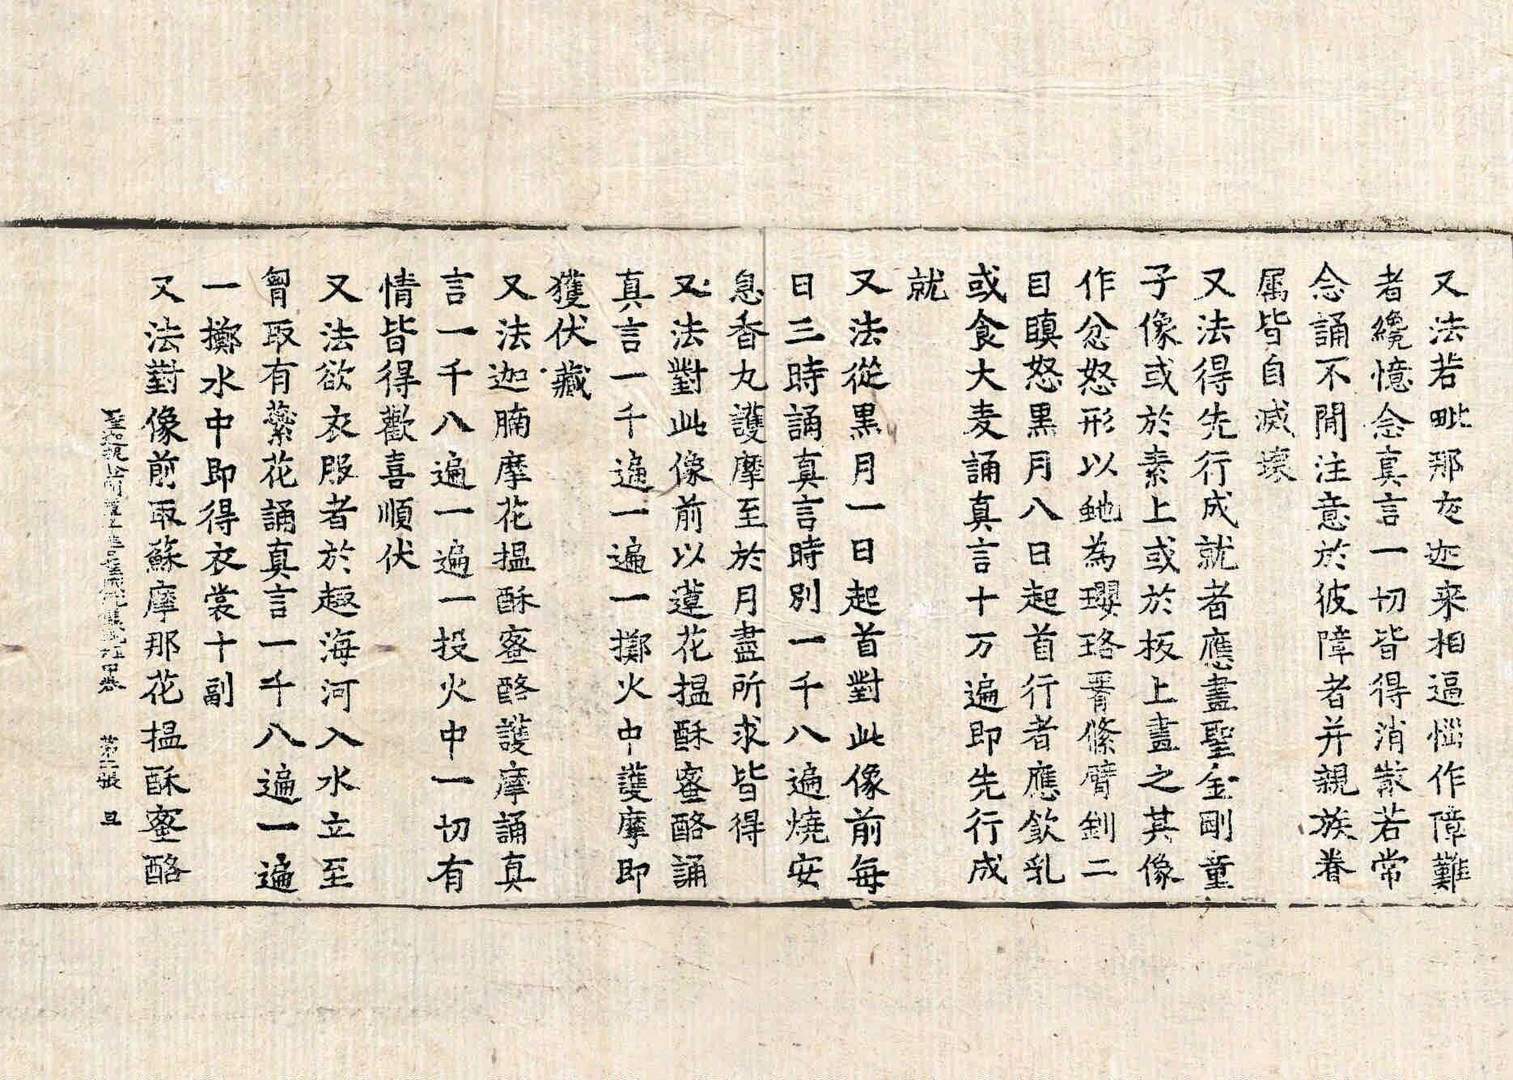 又法若毗那夜迦来相逼惱作障難
者纔憶念真言一切皆得消散若常
念誦不閒注意於彼障者并親族眷
属皆自滅壞
又法得先行成就者應畫聖金剛童
子像或於素上或於板上畫之其像
作忿怒形以虵為瓔珞胷絛臂釧二
目瞋怒黒月八日起首行者應飲乳
或食大麦誦真言十万遍即先行成
就
又法從黒月一日起首對此像前每
日三時誦真言時別一千八遍燒安
息香丸護摩至於月盡所求皆得
又法對此像前以蓮花揾酥蜜酪誦
真言一千遍一遍一擲火中護摩即
獲伏藏
又法迦腩摩花揾酥蜜酪護摩誦真
言一千八遍一遍一投火中一切有
情皆得歡喜順伏
又法欲衣服者於趣海河入水立至
胷取有蘂花誦真言一千八遍一遍
一擲水中即得衣裳十副
又法對像前取蘇摩那花揾酥蜜酪
聖 中卷 第二張 旦